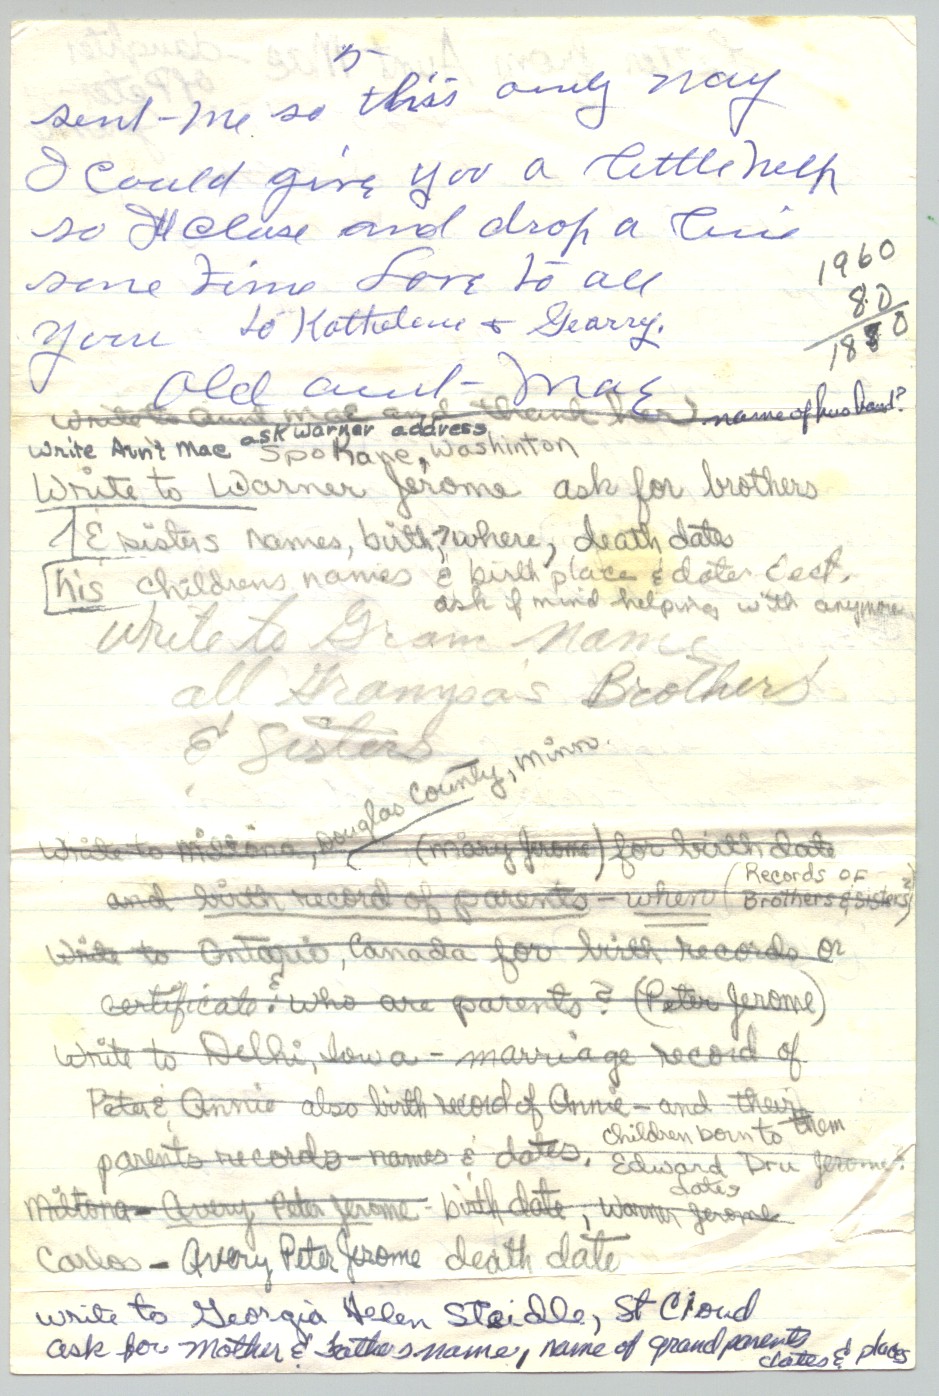 5
sent-me so this only way
I could give you a little help
so I'll close and drop a line
some time Love to all
your to Kathelene & Gearry.
1960
80
1880
Old aunt-Mae
write to aunt Mae and thank her name of husband?
ask Warner address
write Aun't Mae Spokane, Washinton
Write to Warner Jerome ask for brothers
& sisters names, birth, ? where, death dates
his childrens names & birth place & dates Eect.
ask if mind helping with anymore
write to Gram name
all Grampa's Brothers
& Sisters
Douglas County, Minn.
write to Miltona, (Mary Jerome) for birth date
and birth record of parents - when (Records of
Brothers & Sisters?)
Write to Ontario, Canada for birth records or
certificate & who are parents? (Peter Jerome)
Write to Delhi, Iowa - marriage record of
Peter & Annie also birth record of Annie - and their
children born to them
parents records - names & dates. Edward Dru Jerome?
dates
Miltona - Avery Peter Jerome - birth date, Warner Jerome
Carlos - Avery Peter Jerome death date
write to Georgia Helen Steidle, St Cloud
ask for Mother & Fathers name, name of grandparents
dates & places